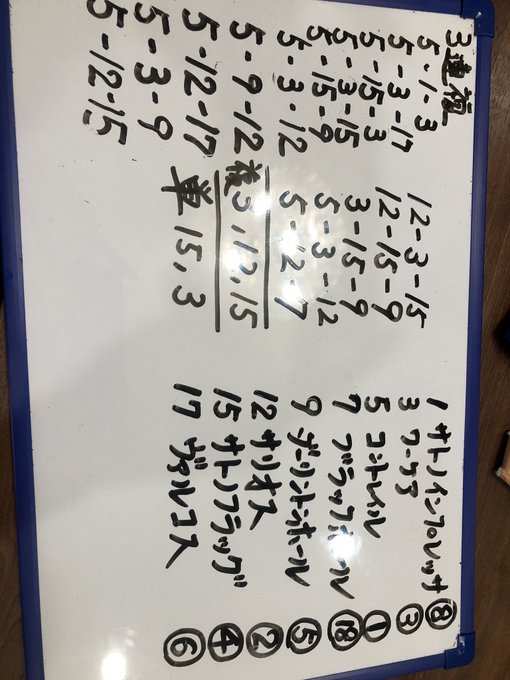 3連複
5-1-3
5-3-17
5-15-3
5-3-15
5-15-9
5-3-12
5-9-12
5-12-17
5-3-9
5-12-15
12-3-15
12-15-9
3-15-9
5-3-12
5-12-7
複 3,12,15
単 15,3
1 サトノインプレッサ ⑧
3 ワーケア ③
5 コントレイル ①
7 ブラックホール ⑱
9 ダーリントンホール ⑤
12 サリオス ②
15 サトノフラッグ ④
17 ヴァルコス ⑥